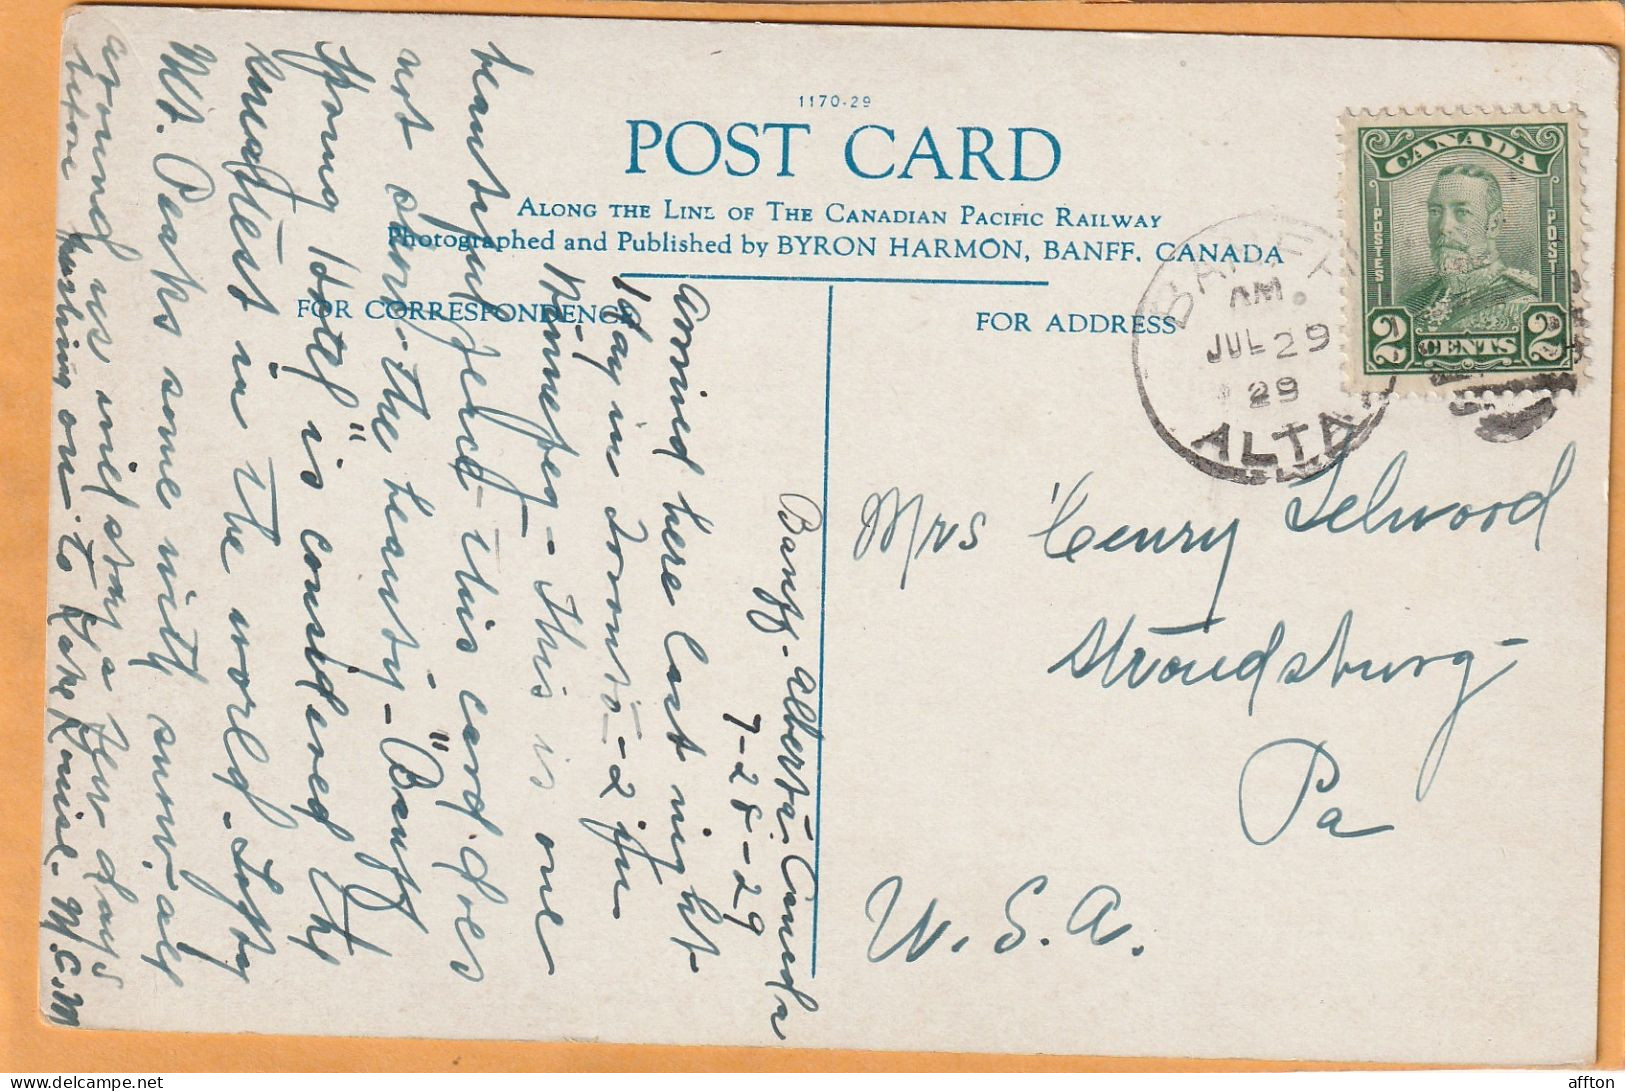 1170-29
POST CARD
ALONG THE LINE OF THE CANADIAN PACIFIC RAILWAY
Photographed and Published by BYRON HARMON, BANFF, CANADA
FOR CORRESPONDENCE
FOR ADDRESS
CANADA
POSTES
POST
2 CENTS 2
BANFF
AM.
JUL 29
29
ALTA
Banff - Alberta - Canada
7-28-29
Arrived here last night
1 day in Toronto - 2 in
Winnepeg - This is one
beautiful place - this card does
not show the beauty - "Banff
Spring Hotel" is considered the
greatest in the world - Lofty
Mt. Peaks some with snow all
around us will stay a few days
before pushing on to Lake Louise - M.C.M
Mrs Henry Selwood
Stroudsburg -
Pa
U.S.A.
affton